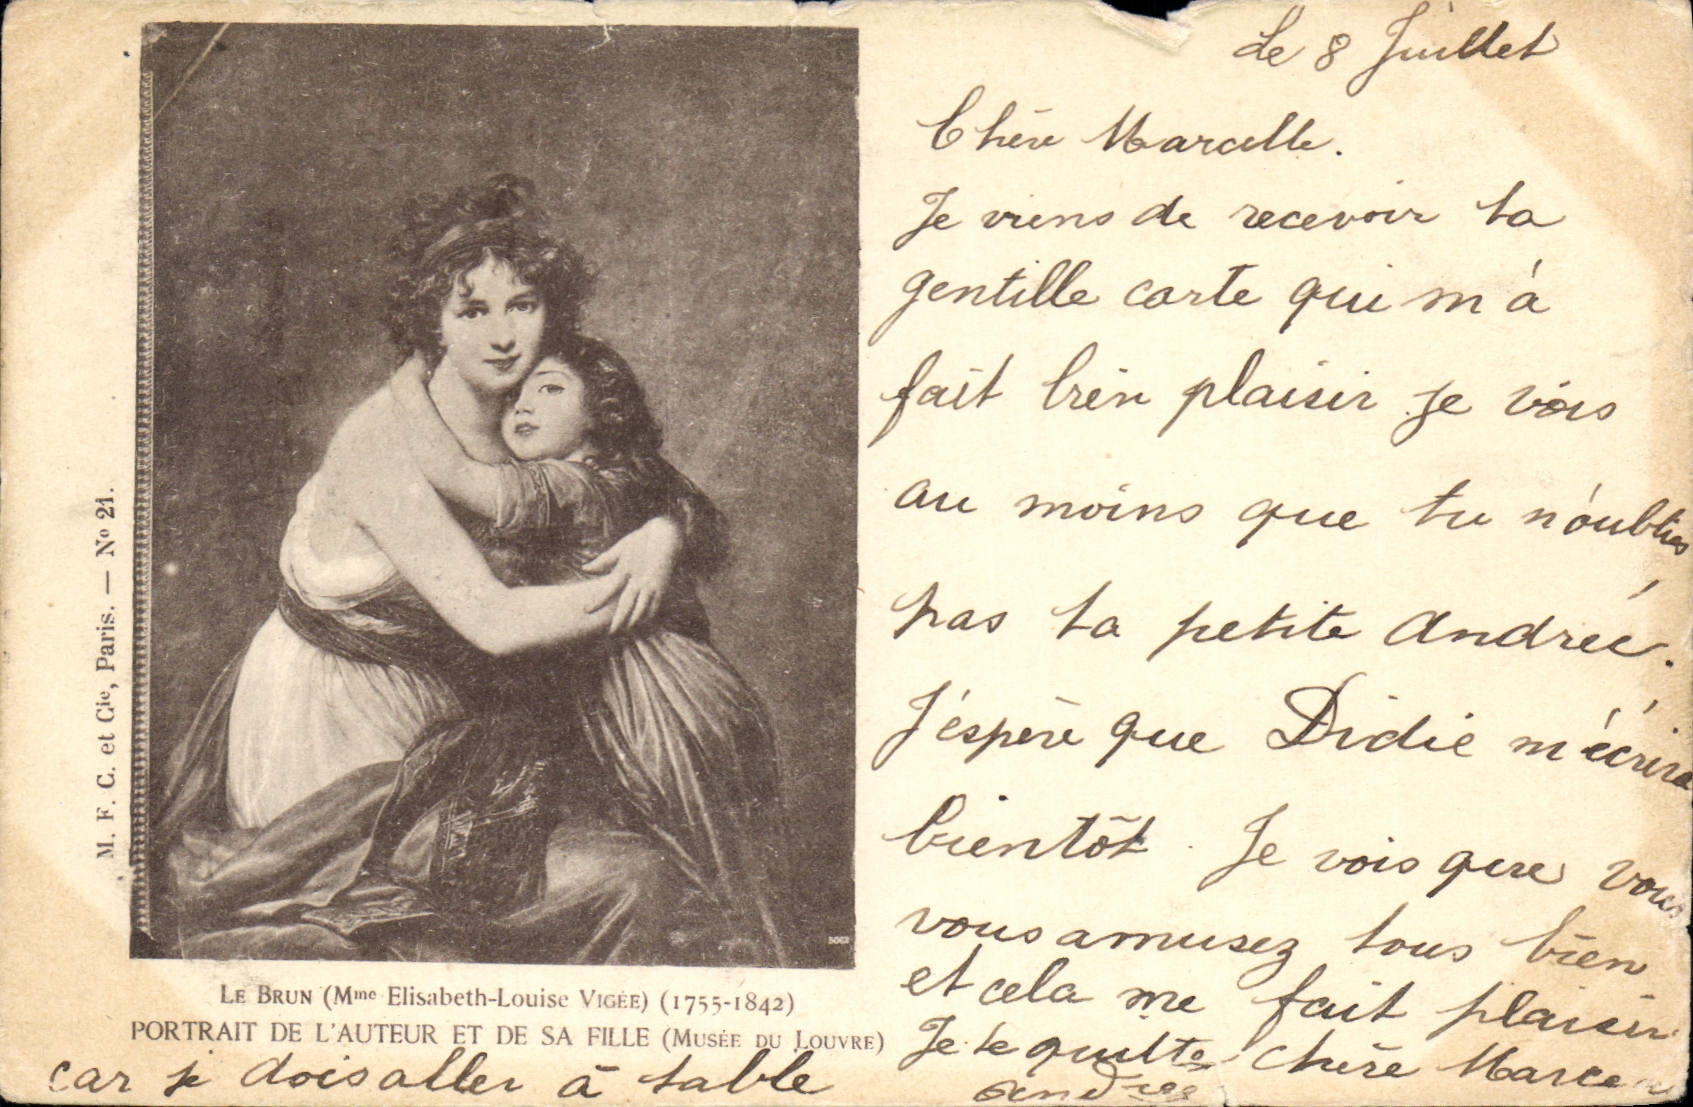 Le 8 Juillet
Chère Marcelle.
Je viens de recevoir ta
gentille carte qui m'a
fait bien plaisir je vois
au moins que tu n'oublies
pas ta petite Andrée.
J'éspère que Didie m'écrira
bientôt. Je vois que vous
vous amusez tous bien
et cela me fait plaisir
Je te quitte chère
car je dois aller à table
Andrée
M. F. C. et Cie, Paris. — No 21.
LE BRUN (Mme Elisabeth-Louise VIGÉE) (1755-1842)
PORTRAIT DE L'AUTEUR ET DE SA FILLE (MUSÉE DU LOUVRE)